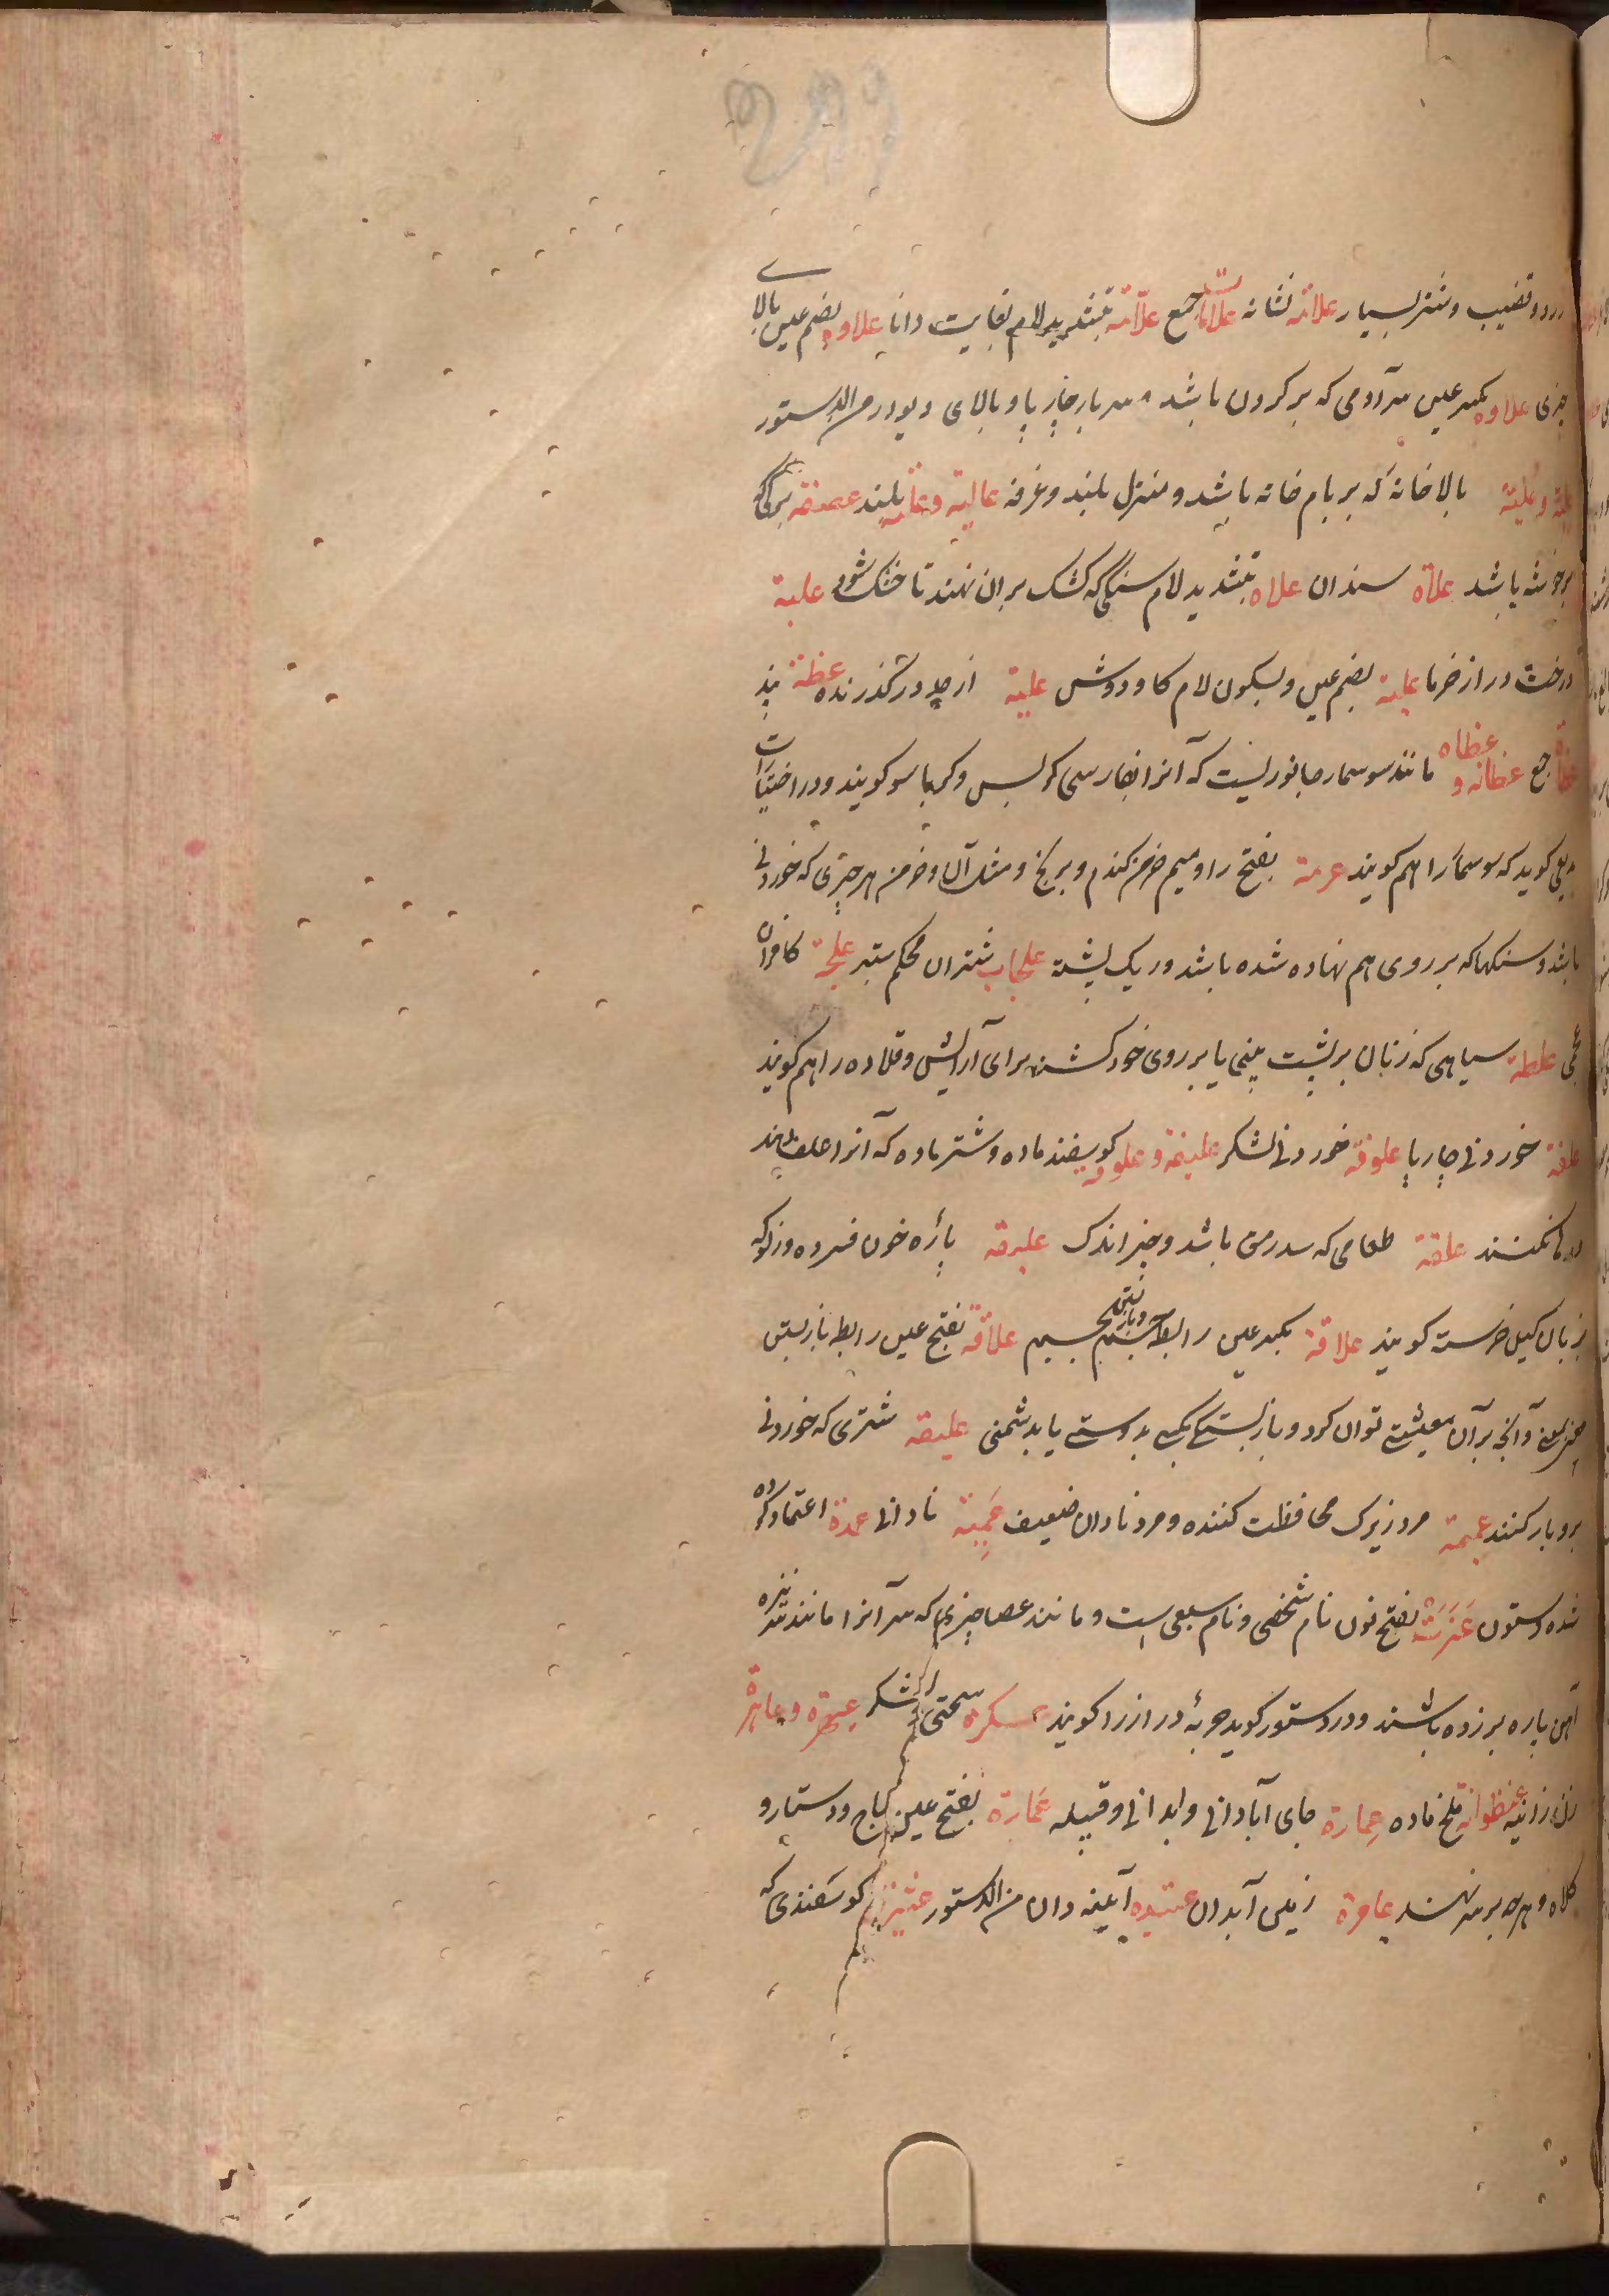 درد و قضیب و شتر بسیار علامة نشانه علامات جمع علّامة بتشدید لام بغایت دانا علاوه بضم عین بالای
چیزی علاوه بکسر عین سر آدمی که بر کردن باشد و سربار چارپا و بالای دیودر من الدستور
علیة و علیّة بالا خانه که بر بام خانه باشد و منزل بلند و غرفه عالیة بلند
بر خوشه باشد علاة سندان علاه بتشدید لام سنکی که کشک بران نهند تا خشک شود علبة
درخت دراز خرما علبة بضم عین و بسکون لام کاودوش علیة از حد درکذرنده عظة پند
جمع عظائة و عظاه مانند سوسمار جانوریست که آنرا بفارسی کربس و کرباسو کویند و در اختیارات
بدیعی کوید که سوسمار را هم کویند عرمة بفتح را و میم خرمن کندم و برنج و مثل آن و خرمن هر چیزی که خوردنی
باشد و سنکها که بر روی هم نهاده شده باشد و ریک پشته شتران محکم ستبر علجة کافران
عجمی علطة سیاهی که زنان بر پشت بینی یا بر روی خود کشند برای آرایش و قلاده را هم کویند
علفة خوردنی چارپا علوفة خوردنی لشکر علیفة و علوفه کوسفند ماده و شتر ماده که آنرا علف دهند
رها نکنند علقة طعامی که سدرمق باشد و چیز اندک علیقه پاره خون فسرده و زلو که
بزبان کیل خرسته کویند علاقة بکسر عین رابطه جسم بجسم علاقة بفتح عین رابطه بازبستن
چیز بمعنی و آنچه بر آن معیشتی توان کرد و بازبستکی بکسی بدوستی یا بدشمنی علیقه شتری که خوردنی
برو بار کنند عمیمة مرد زیرک محافظت کننده و مرد نادان ضعیف عَمِیّة نادانی عمدة اعتماد کرده
شده و ستون عَنَزَة بفتح نون نام شخصی و نام سبعی است و مانند عصا چیزی که سر آنرا مانند سر نیزه
آهن پاره بر زده باشند و در دستور کوید حربهٔ دراز را کویند عسکره سختی و لشکر عیهره و عاهره
زن زانیه عنظوانة ملخ ماده عِمارة جای آبادانی و آبدانی و قبیله عَمارة بفتح عین تاج و دستار و
کلاه و هرچه بر سر نهند عامرة زمین آبدان عتیده آیینه دان من الدستور کوسفندی که